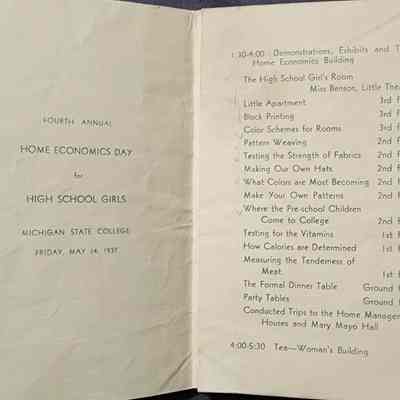 FOURTH ANNUAL
HOME ECONOMICS DAY
for
HIGH SCHOOL GIRLS
MICHIGAN STATE COLLEGE
FRIDAY, MAY 14, 1937
1:30-4:00 Demonstrations, Exhibits and
Home Economics Building
The High School Girl's Room
Miss Benson, Little
Little Apartment 3rd
Block Printing 3rd
Color Schemes for Rooms 3rd
Pattern Weaving 2nd
Testing the Strength of Fabrics 2nd
Making Our Own Hats 2nd
What Colors are Most Becoming 2nd
Make Your Own Patterns 2nd
Where the Pre-school Children
Come to College 2nd
Testing for the Vitamins 1st
How Calories are Determined 1st
Measuring the Tenderness of
Meat 1st
The Formal Dinner Table Ground
Party Tables Ground
Conducted Trips to the Home
Houses and Mary Mayo Hall
4:00-5:30 Tea—Woman's Building